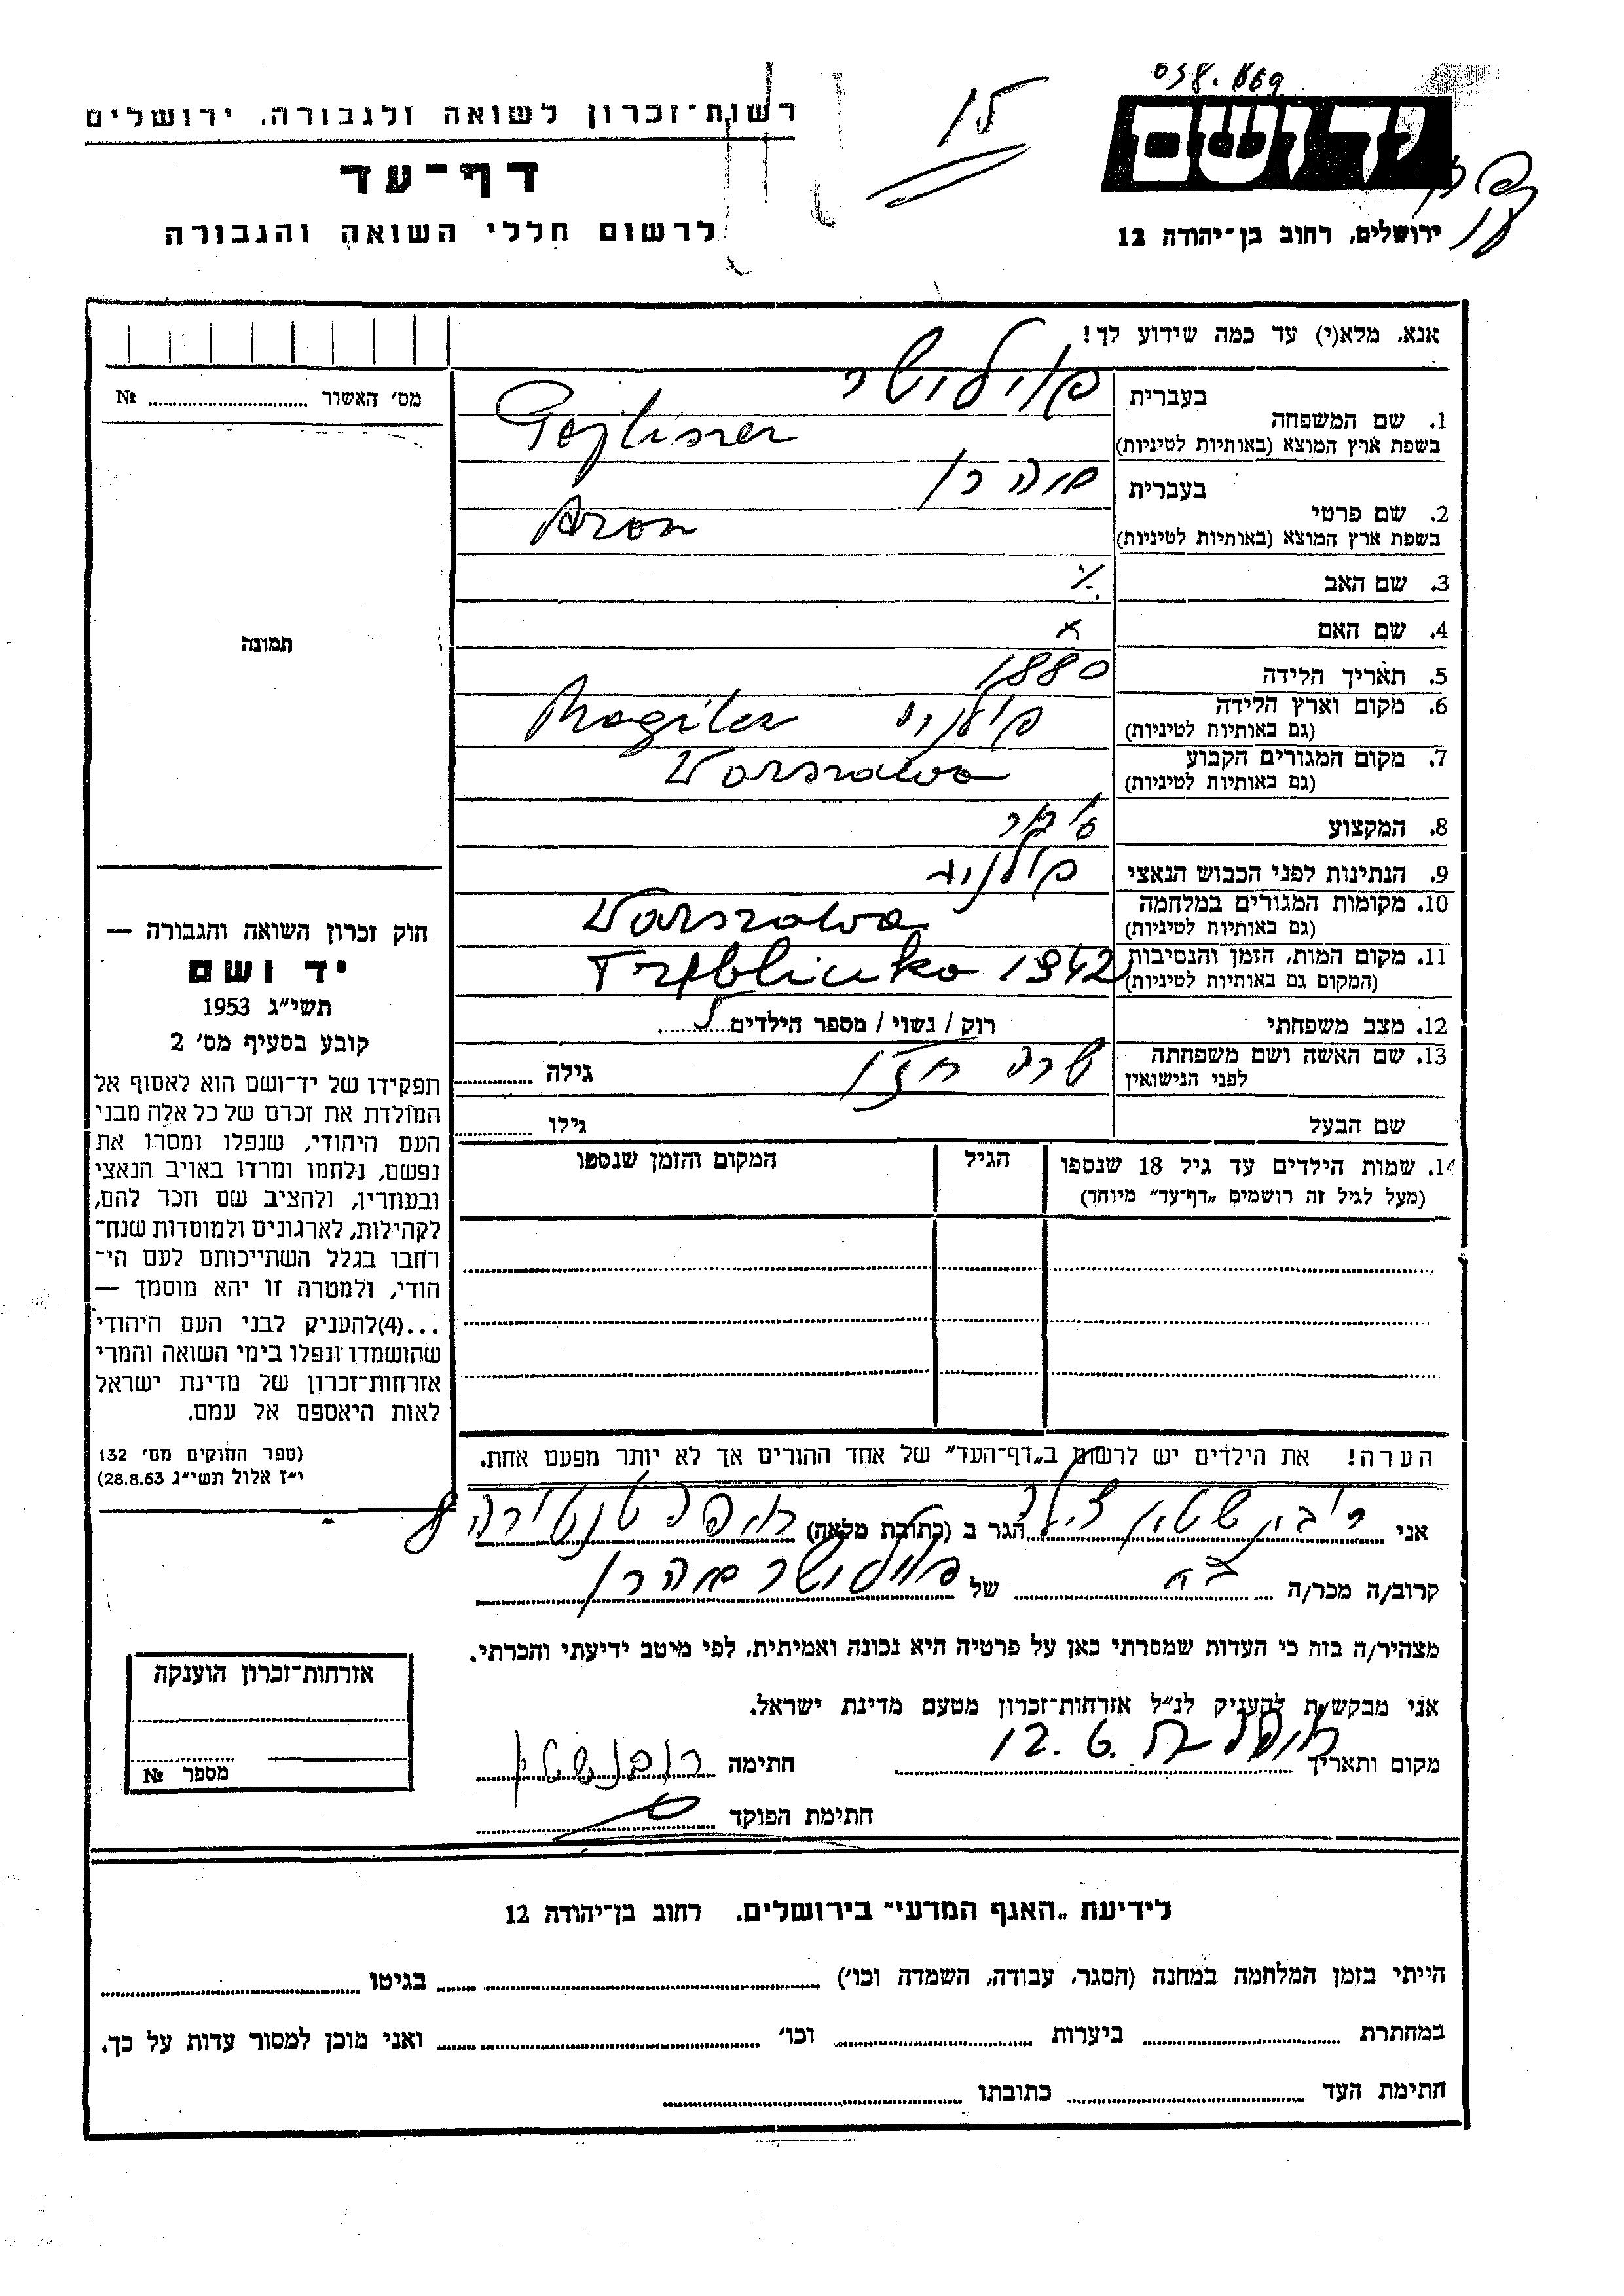 038.869
רשות־זכרון לשואה ולגבורה, ירושלים
15
יד ושם
דף־עד
לרשום חללי השואה והגבורה
ירושלים, רחוב בן־יהודה 12
אנא, מלא(י) עד כמה שידוע לך!
מס׳ האשור № 
תמונה
1. שם המשפחה
בעברית
בשפת ארץ המוצא (באותיות לטיניות)
2. שם פרטי
בעברית אהרן
בשפת ארץ המוצא (באותיות לטיניות) Aron
3. שם האב
4. שם האם
5. תאריך הלידה 1880
6. מקום וארץ הלידה פולניה
(גם באותיות לטיניות)
7. מקום המגורים הקבוע Warszawa
(גם באותיות לטיניות)
8. המקצוע
9. הנתינות לפני הכבוש הנאצי פולנית
10. מקומות המגורים במלחמה Warszawa
(גם באותיות לטיניות)
11. מקום המות, הזמן והנסיבות Treblinka 1942
(המקום גם באותיות לטיניות)
12. מצב משפחתי רוק / נשוי / מספר הילדים 5
13. שם האשה ושם משפחתה שרה חזן גילה
לפני הנישואין
שם הבעל גילו
14. שמות הילדים עד גיל 18 שנספו הגיל המקום והזמן שנספו
(מעל לגיל זה רושמים „דף־עד״ מיוחד)
הערה! את הילדים יש לרשום ב„דף־העד״ של אחד ההורים אך לא יותר מפעם אחת.
חוק זכרון השואה והגבורה —
יד ושם
תשי״ג 1953
קובע בסעיף מס׳ 2
תפקידו של יד־ושם הוא לאסוף אל
המולדת את זכרם של כל אלה מבני
העם היהודי, שנפלו ומסרו את
נפשם, נלחמו ומרדו באויב הנאצי
ובעוזריו, ולהציב שם וזכר להם,
לקהילות, לארגונים ולמוסדות שנח־
רחבו בגלל השתייכותם לעם הי־
הודי, ולמטרה זו יהא מוסמך —
...(4)להעניק לבני העם היהודי
שהושמדו ונפלו בימי השואה והמרי
אזרחות־זכרון של מדינת ישראל
לאות היאספם אל עמם.
(ספר החוקים מס׳ 132
י״ז אלול תשי״ג 28.8.53)
אני הגר ב (כתובת מלאה)
קרוב/ה מכר/ה של אהרן
מצהיר/ה בזה כי העדות שמסרתי כאן על פרטיה היא נכונה ואמיתית, לפי מיטב ידיעתי והכרתי.
אני מבקש/ת להעניק לנ״ל אזרחות־זכרון מטעם מדינת ישראל.
מקום ותאריך 12.6 חתימה רובנשטין
חתימת הפוקד
אזרחות־זכרון הוענקה
מספר №
לידיעת „האגף המדעי״ בירושלים, רחוב בן־יהודה 12
הייתי בזמן המלחמה במחנה (הסגר, עבודה, השמדה וכו׳) בגיטו
במחתרת ביערות וכו׳ ואני מוכן למסור עדות על כך.
חתימת העד כתובתו